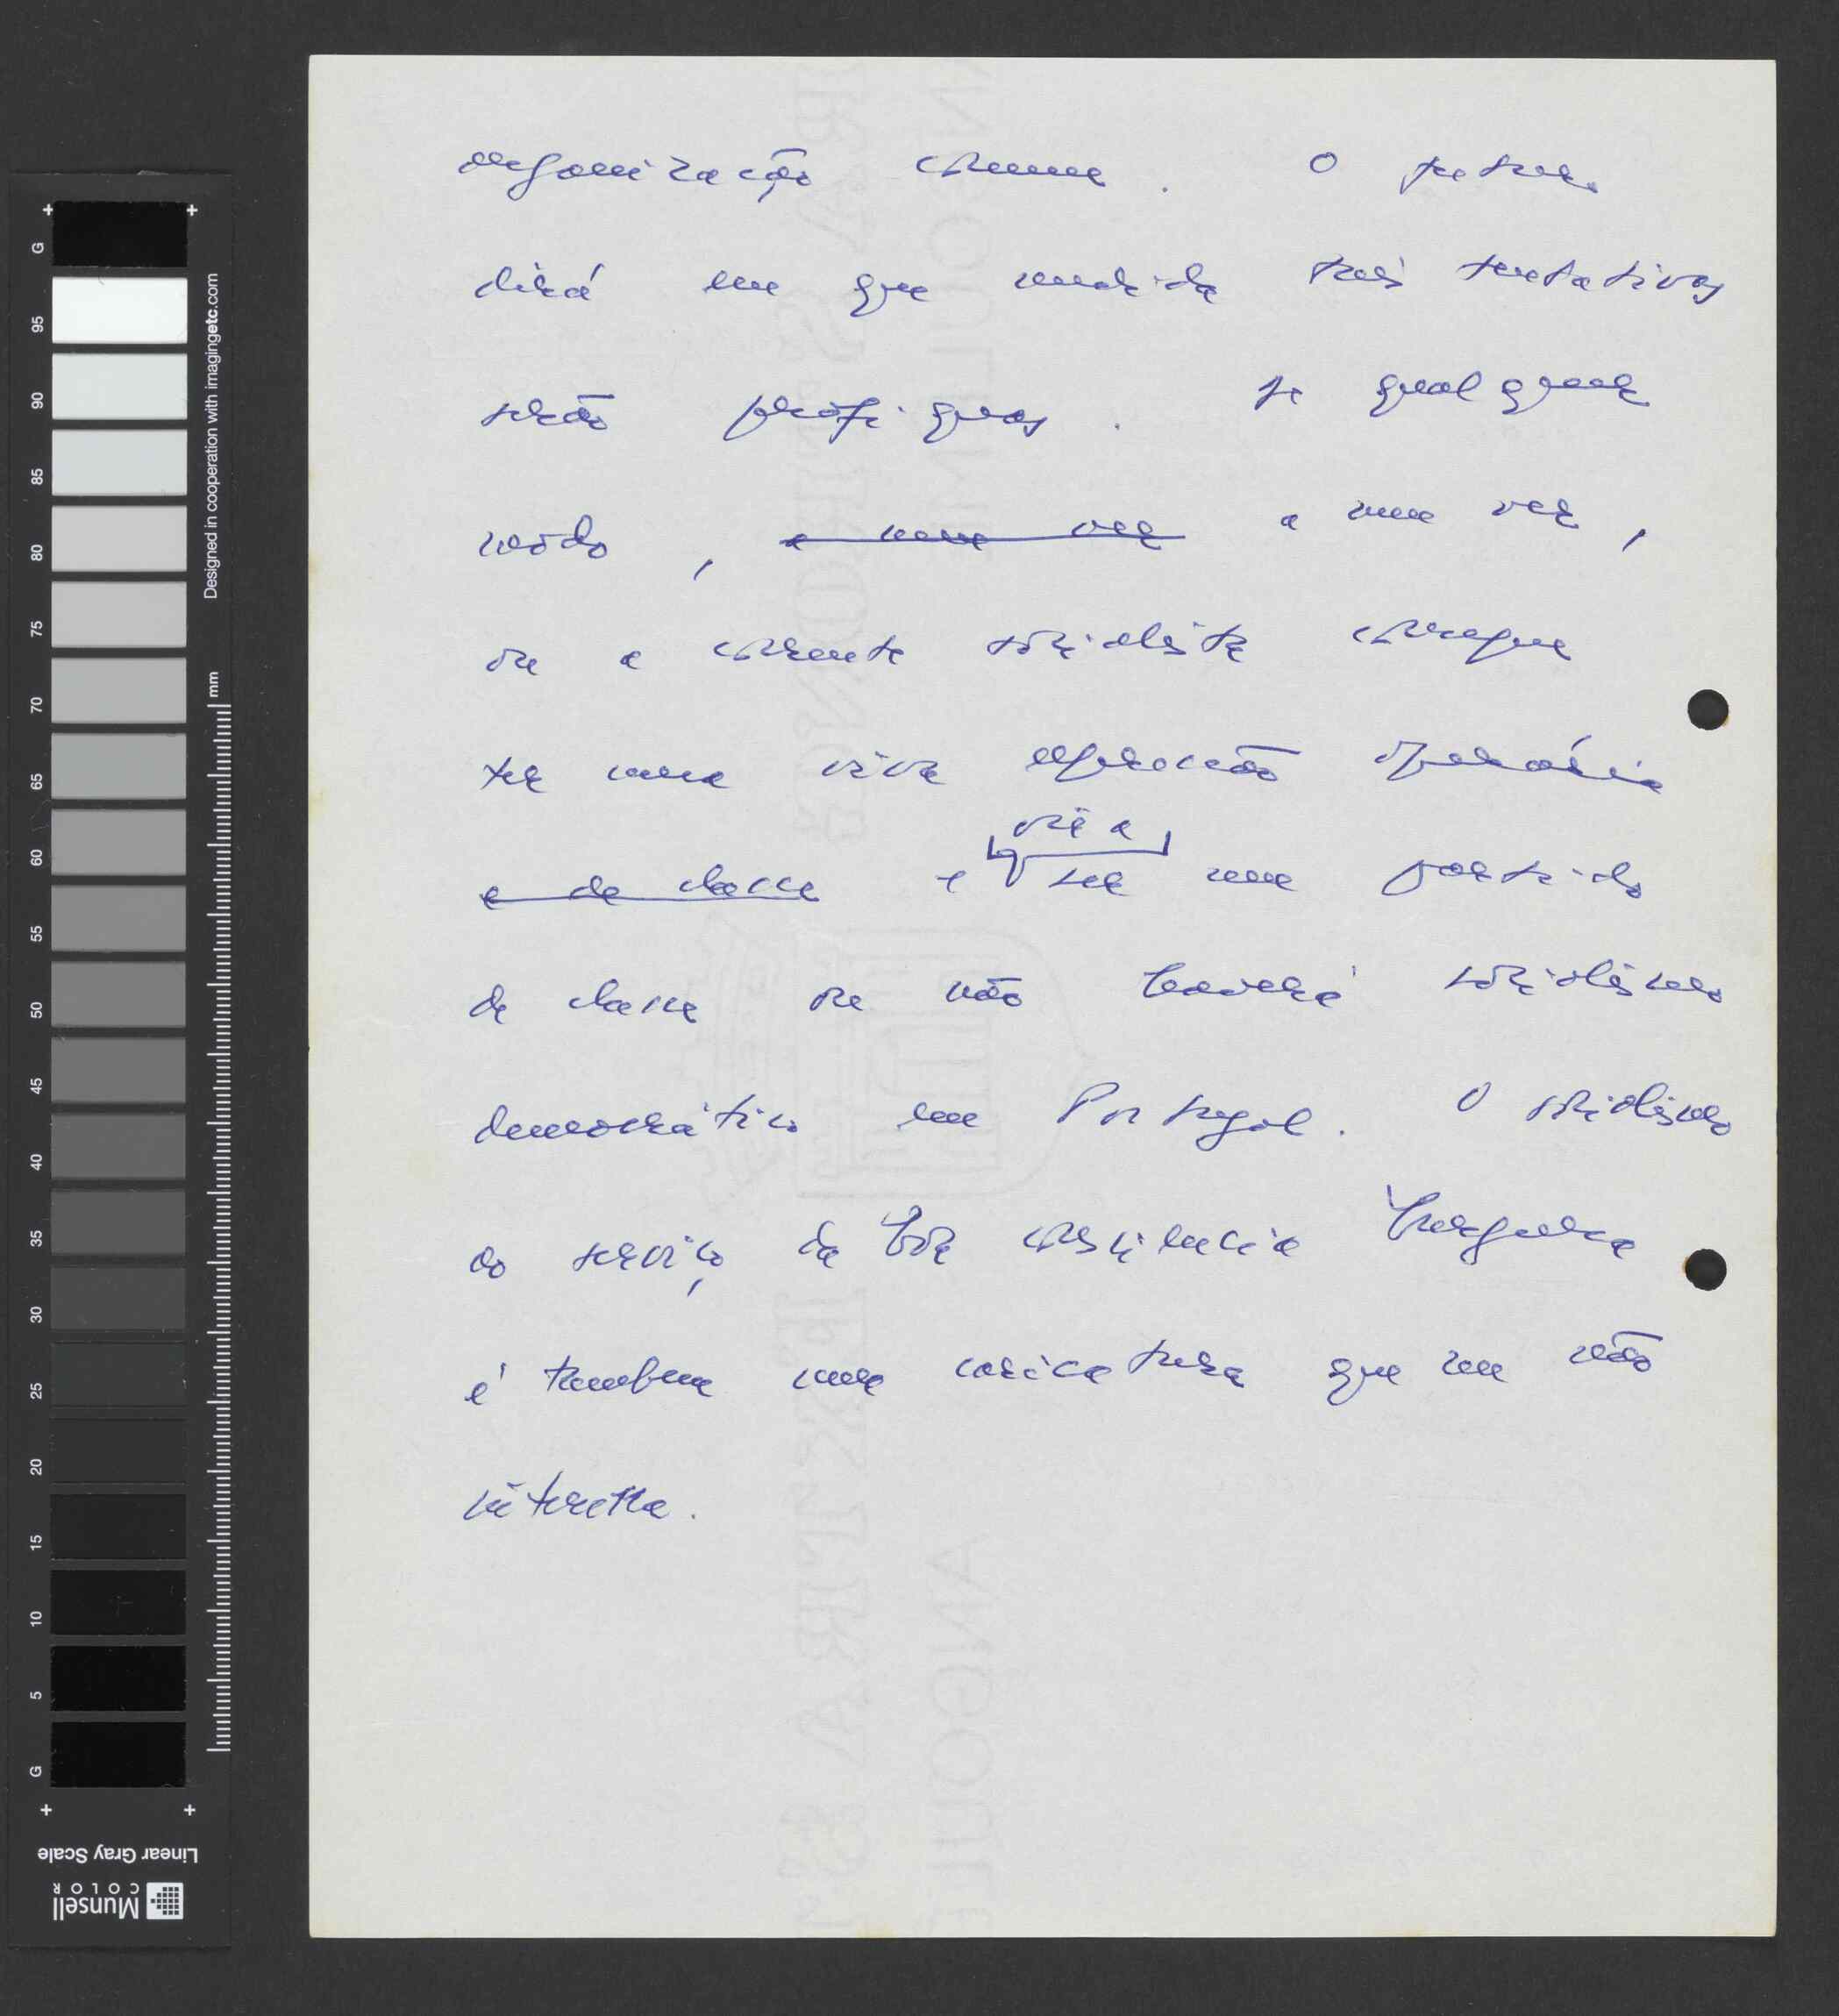 organização comum. O futuro
dirá em que medida tais tentativas
serão profíquas. De qualquer
modo, a meu ver a meu ver,
ou a corrente socialista consegue
ter uma viva expressão operária
e de classe e vir a ser um partido
de classe ou não haverá socialismo
democrático em Portugal. O socialismo
ao serviço da boa consciência burguesa
é também uma caricatura que me não
interessa.
Designed in cooperation with imagingetc.com
mm
G 95 90 85 80 75 70 65 60 55 50 45 40 35 30 25 20 15 10 5 G
Linear Gray Scale
Munsell
COLOR